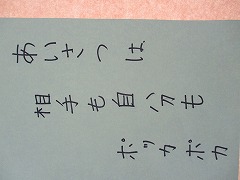 あいさつは
相手も自分も
ポッカポカ